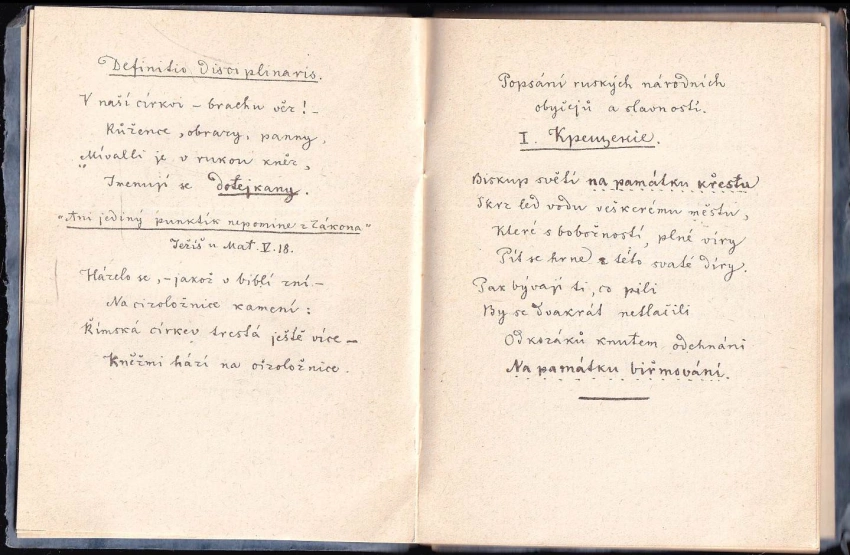 Definitio disciplinaris.
V naší církvi – brachu věr! –
Růžence, obrazy, panny,
"Mívalli je v rukou kněz,
Imenují se dotejkany.
"Ani jediný punktík nepomine z Zákona"
Ježíš u Mat. V. 18.
Házelo se, – jakož v biblí zní –
Na cizoložnice kamení:
Římská církev trestá ještě více –
Kněžmi hází na cizoložnice.
Popsání ruských národních
obyčejů a slavností.
I. Крещение.
Biskup světí na památku křestu
Skrz led vodu veškerému městu,
Které s bobožností, plné víry
Pít se hrne z této svaté díry.
Pak bývají ti, co pili
By se dvakrát netlačili
Od kozáků knutem odehnáni
Na památku biřmování.